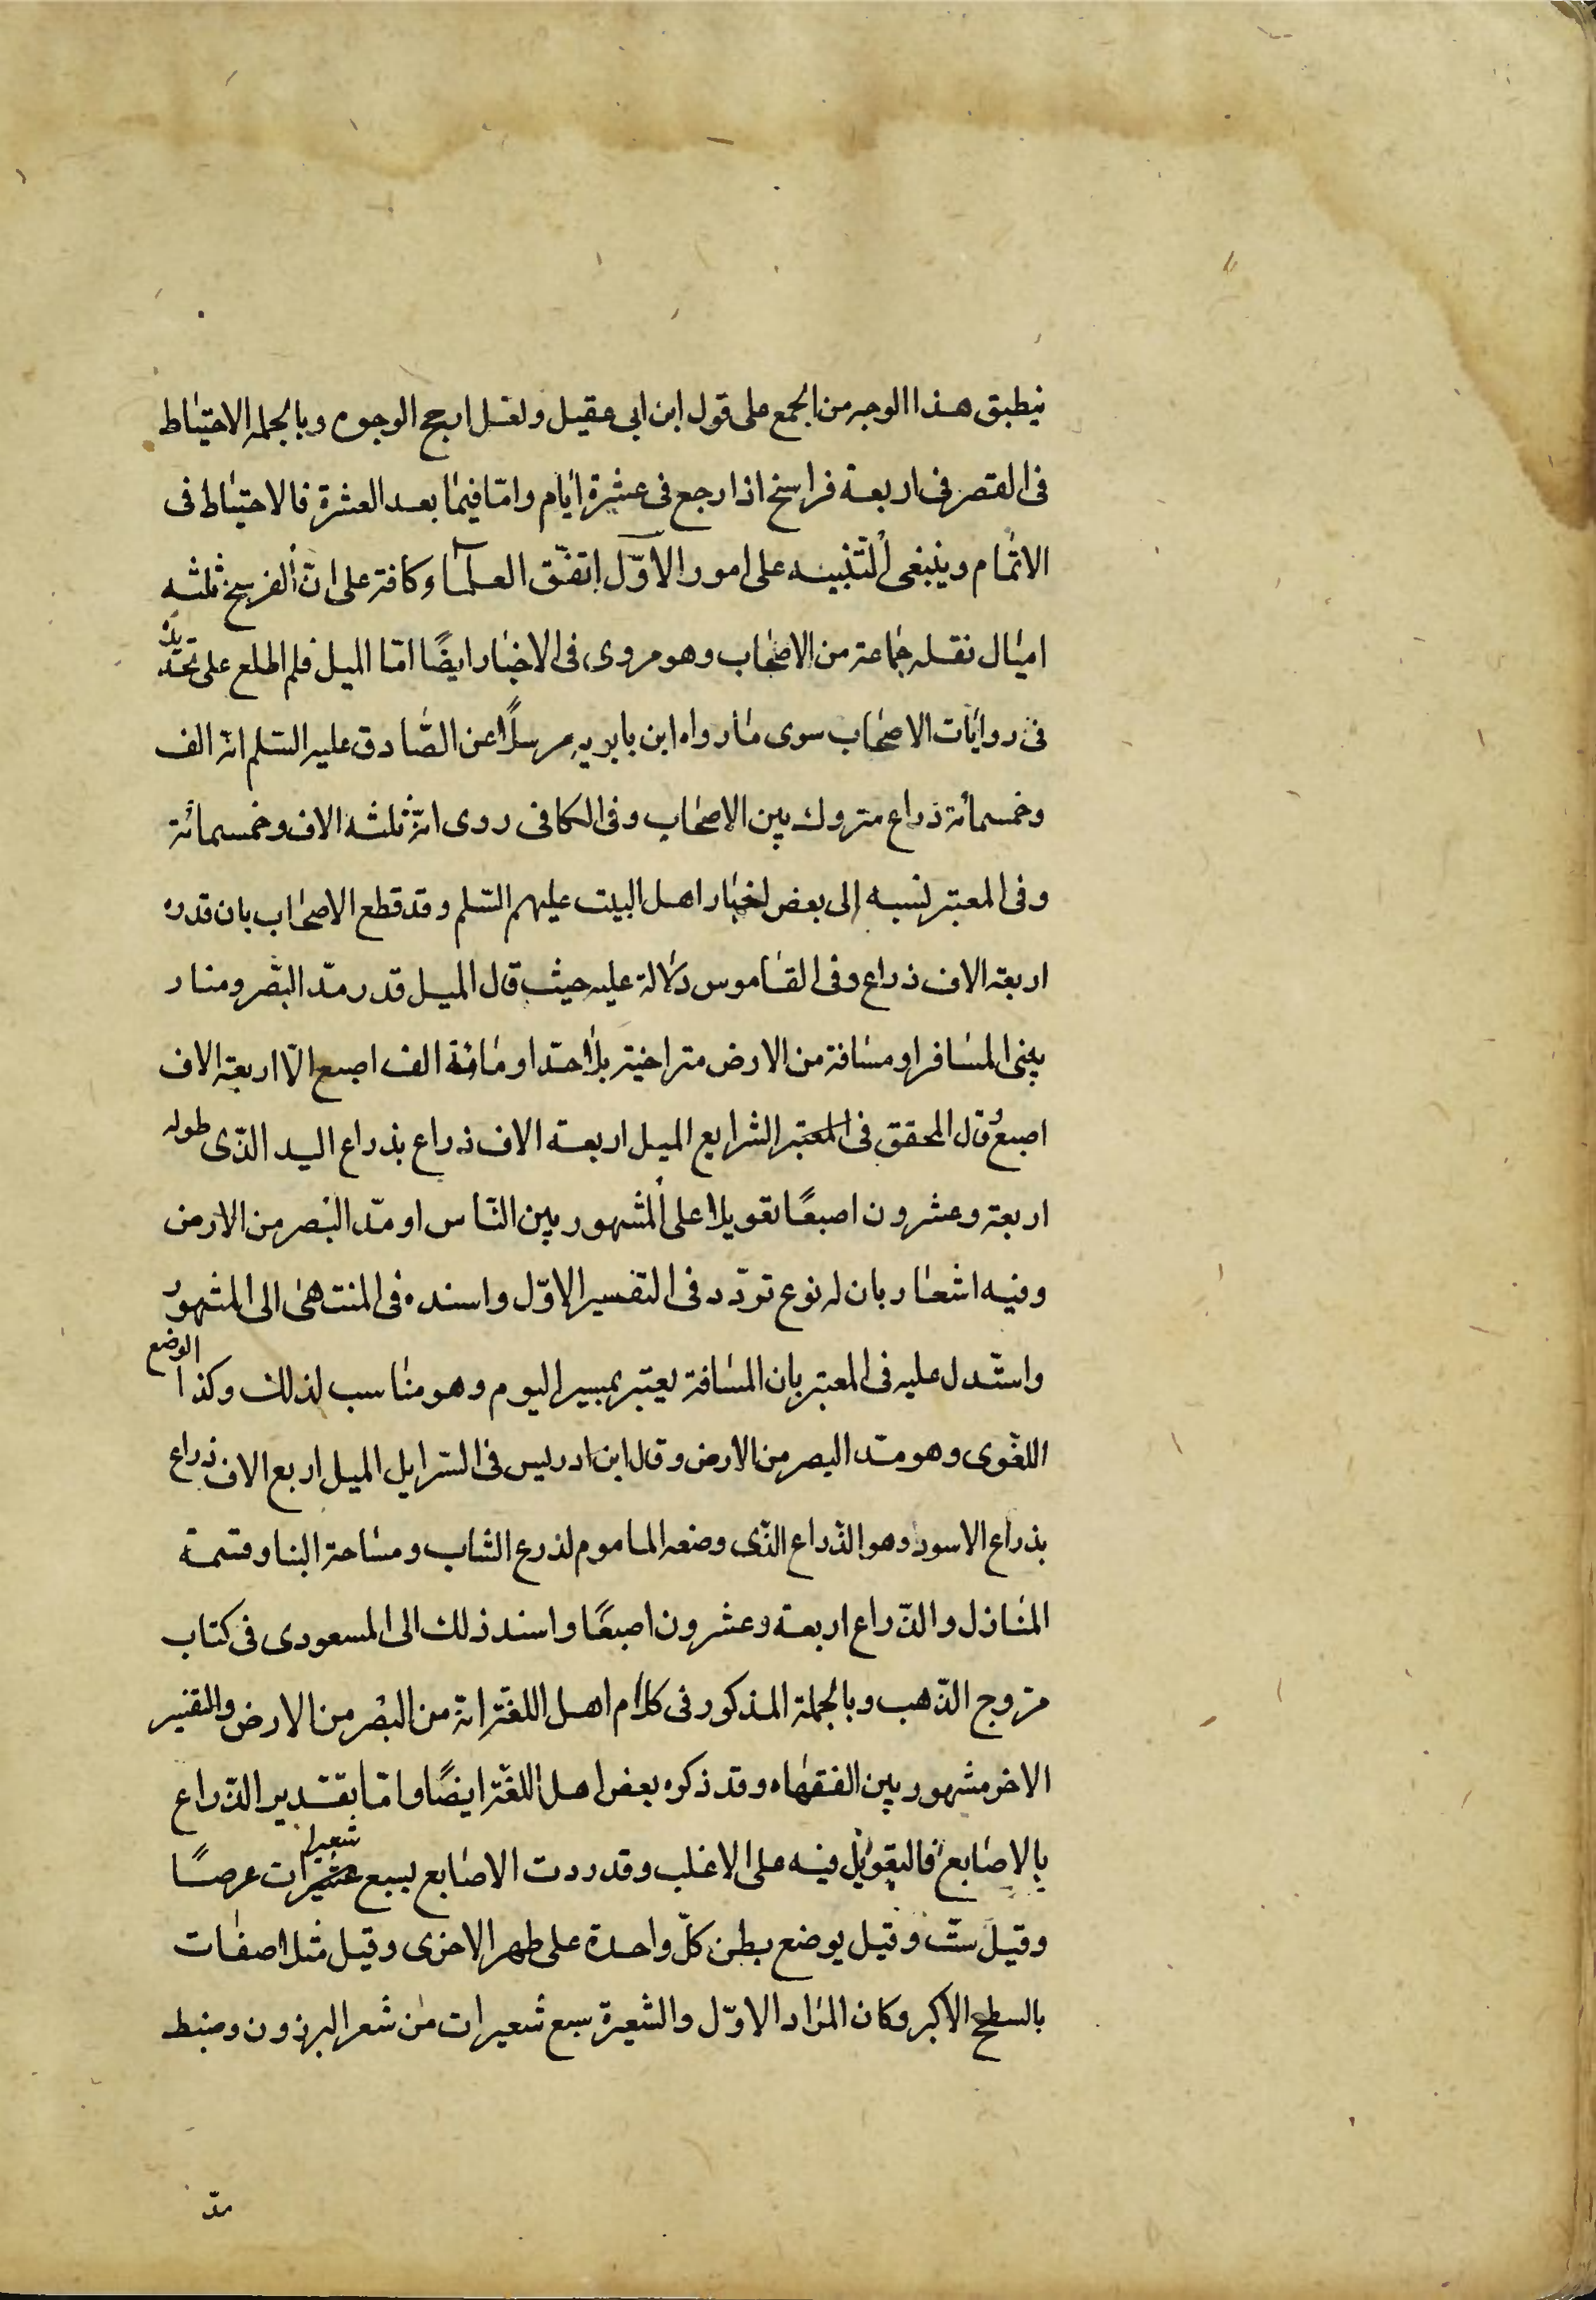 نيطبق هذا الوجه من الجمع على قول ابن ابى عقيل ولعل ارجح الوجوه وبالجمله الاحتياط
فى القصر فى اربعة فراسخ اذا رجع فى عشرة ايام وامّا فيما بعد العشرة فالاحتياط فى
الاتمام وينبغى التنبيه على امور الاوّل اتفق العلماء كافة على انّ الفرسخ ثلثه
اميال نقله جماعة من الاصحاب وهو مروى فى الاخبار ايضًا امّا الميل فلم اطلع على تحديده
فى روايات الاصحاب سوى ما رواه ابن بابويه مرسلًا عن الصّادق عليه السّلم انه الف
وخمسمائة ذراع متروك بين الاصحاب وفى الكافى روى انّه ثلثه الاف وخمسمائة
وفى المعتبر نسبه الى بعض اخبار اهل البيت عليهم السّلم وقد قطع الاصحاب بان قدره
اربعة الاف ذراع وفى القاموس دلالة عليه حيث قال الميل قدر مدّ البصر ومنار
يبنى المسافر او مسافة من الارض متراخية بلا حدّ او مائة الف اصبع الّا اربعة الاف
اصبع وقال المحقق فى الشرايع الميل اربعة الاف ذراع بذراع اليد الذّى طوله
اربعة وعشرون اصبعًا تعويلا على المشهور بين النّاس او مدّ البصر من الارض
وفيه اشعار بان له نوع تردّد فى التفسير الاوّل واسنده فى المنتهى الى المشهور
واستدل عليه فى المعتبر بان المسافة يعتبر بمسير اليوم وهو مناسب لذلك وكذا الوضع
اللغوى وهو مدّ البصر من الارض وقال ابن ادريس فى السرايل الميل اربع الاف ذراع
بذراع الاسود وهو الذّراع الذّى وضعه المأموم لذرع الثياب ومساحة البنا وقسمة
المنازل والذّراع اربعة وعشرون اصبعًا واسند ذلك الى المسعودى فى كتاب
مروج الذّهب وبالجملة المذكور فى كلام اهل اللغة انه من البصر من الارض والتفسير
الاخر مشهور بين الفقهاء وقد ذكره بعض اهل اللغة ايضًا وامّا تقدير الذّراع
بالاصابع فالتعويل فيه على الاغلب وقد ردت الاصابع بسبع شعيرات عرضًا
وقيل ستّ وقيل يوضع بطن كلّ واحدة على ظهر الاخرى وقيل مثل اصفات
بالسطح الاكبر وكان المراد الاوّل والشعيرة سبع شعيرات من شعر البرذون وضبط
مدّ